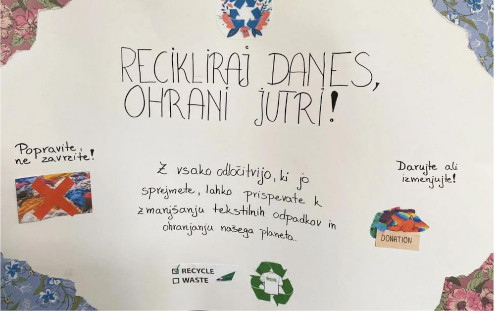 RECIKLIRAJ DANES,
OHRANI JUTRI!
Popravite,
ne zavrzite!
Z vsako odločitvijo, ki jo
sprejmete, lahko prispevate k
zmanjšanju tekstilnih odpadkov in
ohranjanju našega planeta.
Darujte ali
izmenjujte!
DONATION
RECYCLE
WASTE